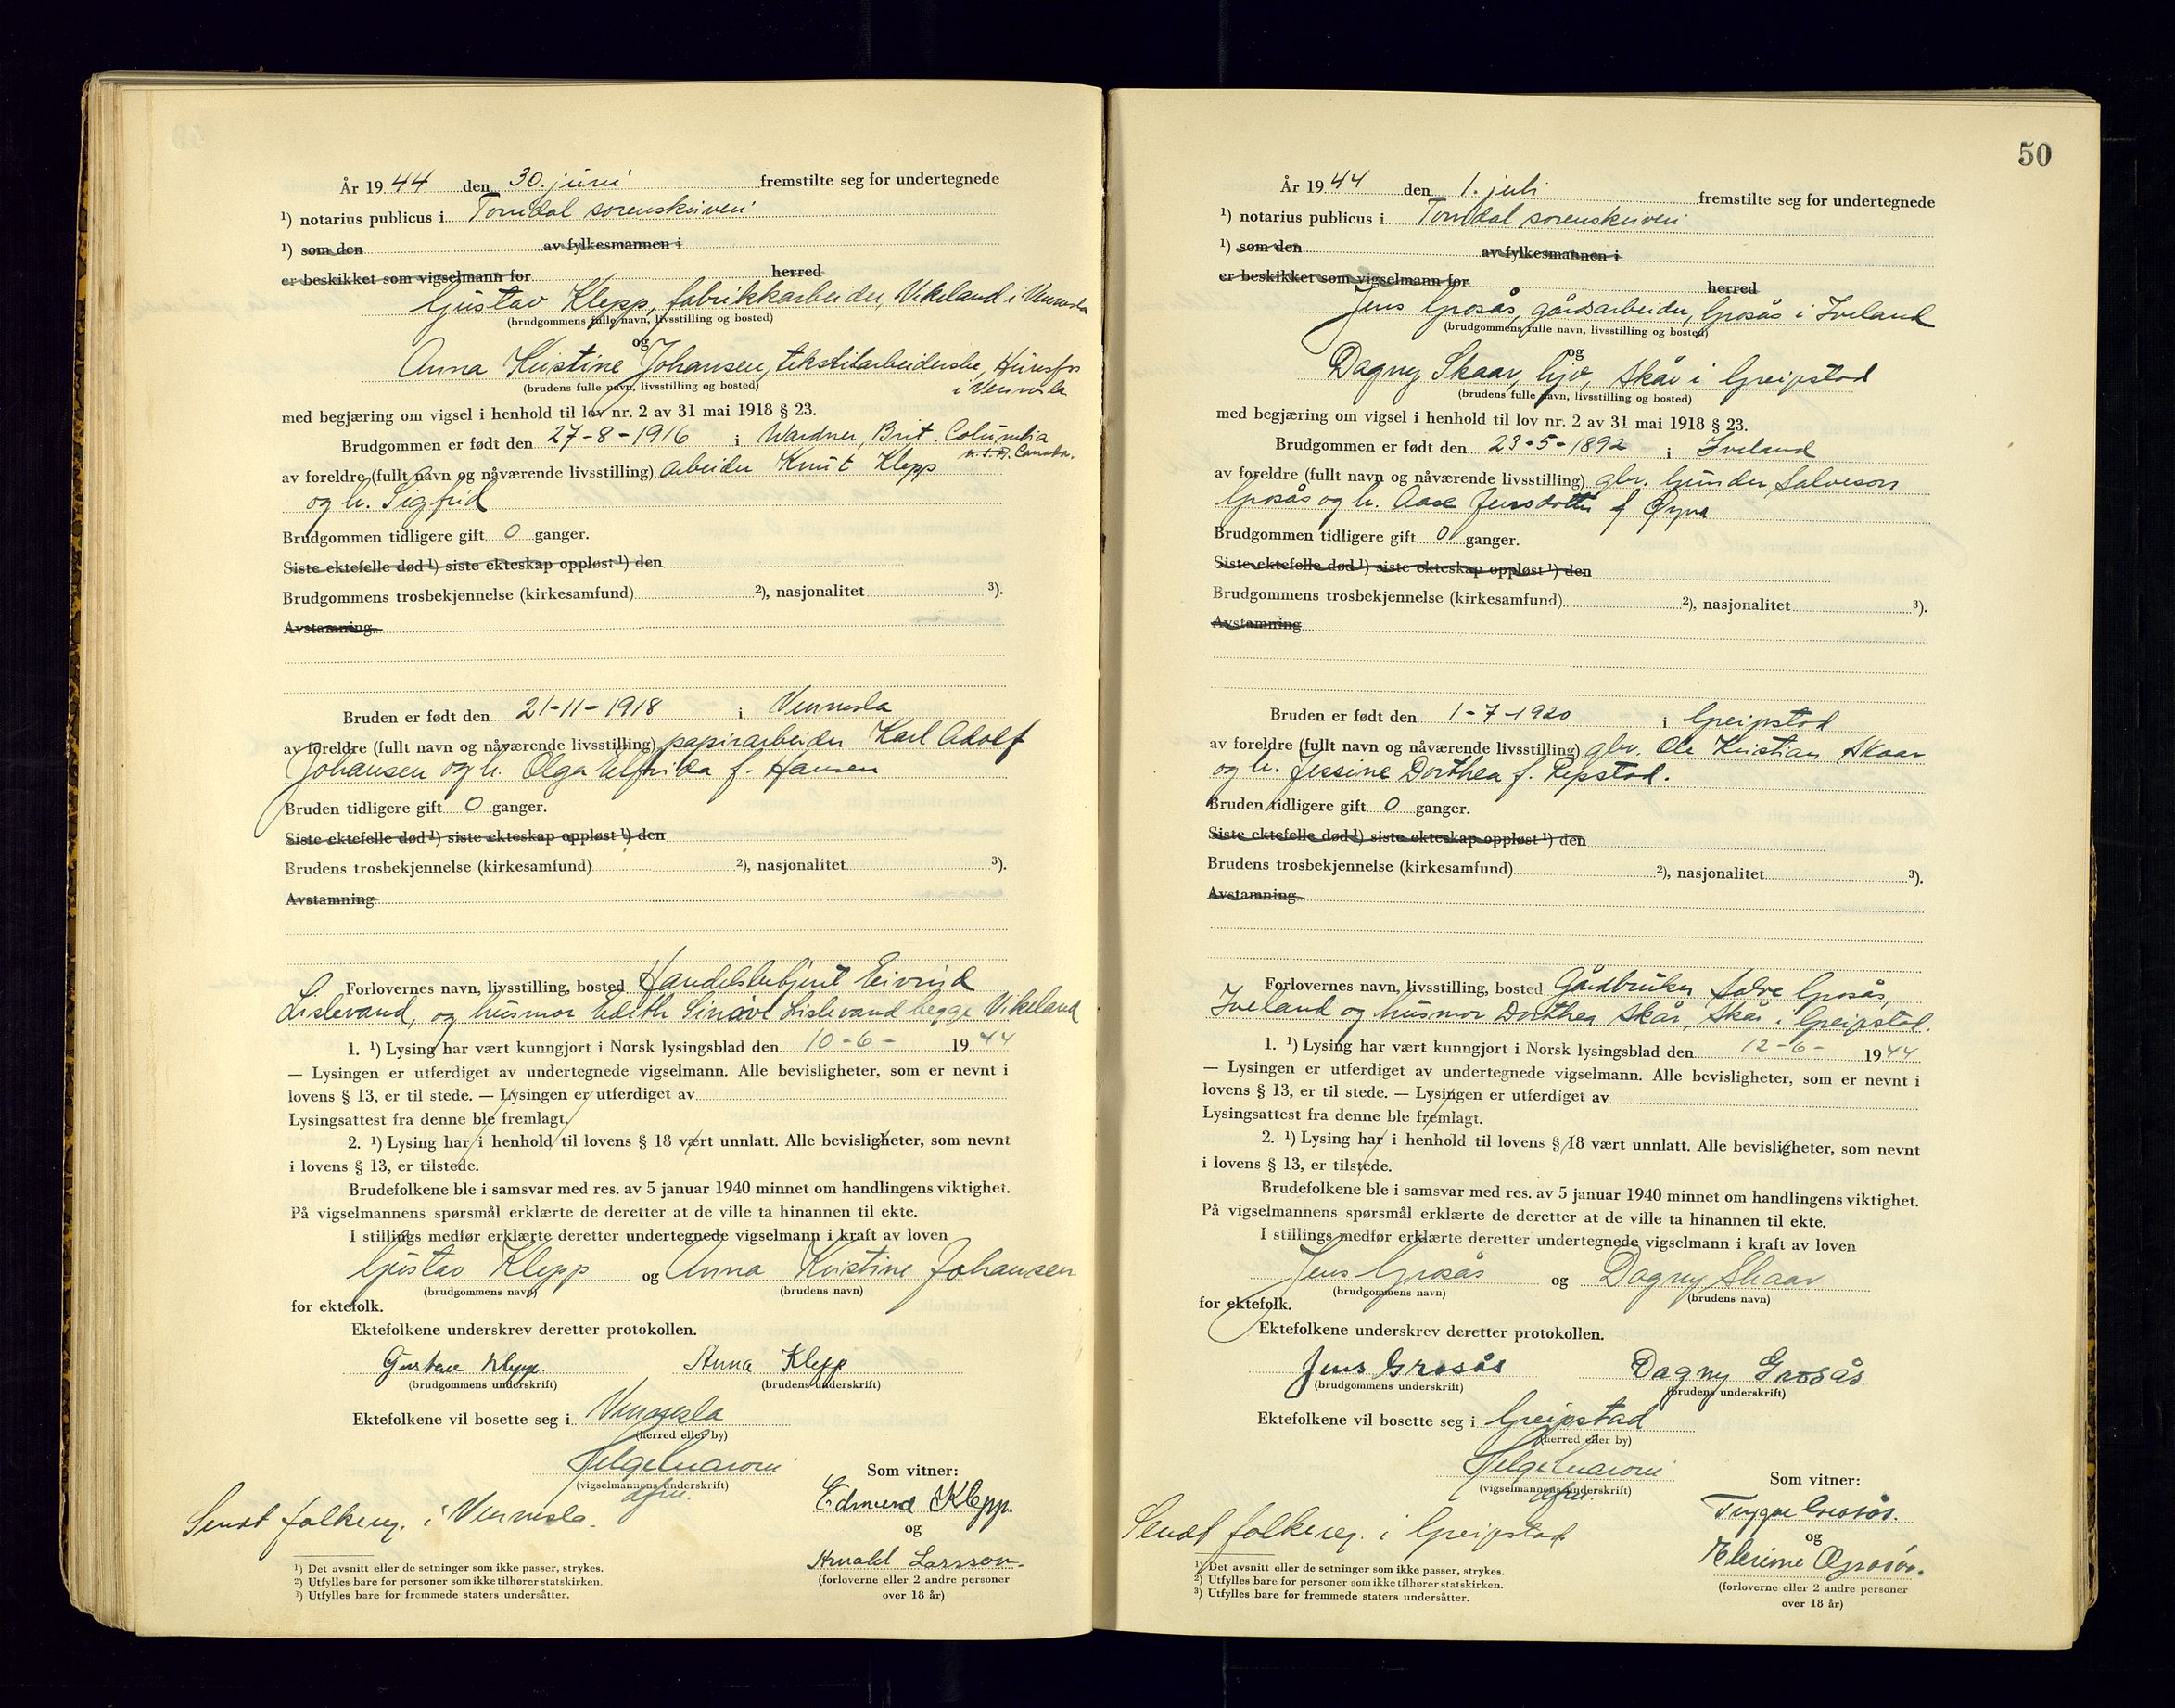 År 1944 den 30. juni fremstilte seg for undertegnede
¹) notarius publicus i Torridal sorenskriveri
¹) som den av fylkesmannen i
er beskikket som vigselmann for herred
Gustav Klepp, fabrikkarbeider, Vikeland i Vennesla
(brudgommens fulle navn, livsstilling og bosted)
og
Anna Kristine Johansen, tekstilarbeiderske, Hunsfos
i Vennesla
(brudens fulle navn, livsstilling og bosted)
med begjæring om vigsel i henhold til lov nr. 2 av 31 mai 1918 § 23.
Brudgommen er født den 27-8-1916 i Wardner, Brit. Columbia
U.S.A. Canada.
av foreldre (fullt navn og nåværende livsstilling) arbeider Knut Klepp
og h. Sigfrid
Brudgommen tidligere gift 0 ganger.
Siste ektefelle død ¹) siste ekteskap oppløst ¹) den
Brudgommens trosbekjennelse (kirkesamfund) ²), nasjonalitet ³).
Avstamning
Bruden er født den 21-11-1918 i Vennesla
av foreldre (fullt navn og nåværende livsstilling) papirarbeider Karl Adolf
Johansen og h. Olga Elfrida f. Hansen
Bruden tidligere gift 0 ganger.
Siste ektefelle død ¹) siste ekteskap oppløst ¹) den
Brudens trosbekjennelse (kirkesamfund) ²), nasjonalitet ³).
Avstamning
Forlovernes navn, livsstilling, bosted Handelsbetjent Eivind
Lislevand, og husmor Edith Sinøve Lislevand begge Vikeland
1. ¹) Lysing har vært kunngjort i Norsk lysingsblad den 10-6- 1944
— Lysingen er utferdiget av undertegnede vigselmann. Alle bevisligheter, som er nevnt i
lovens § 13, er til stede. — Lysingen er utferdiget av
Lysingsattest fra denne ble fremlagt.
2. ¹) Lysing har i henhold til lovens § 18 vært unnlatt. Alle bevisligheter, som nevnt
i lovens § 13, er tilstede.
Brudefolkene ble i samsvar med res. av 5 januar 1940 minnet om handlingens viktighet.
På vigselmannens spørsmål erklærte de deretter at de ville ta hinannen til ekte.
I stillings medfør erklærte deretter undertegnede vigselmann i kraft av loven
Gustav Klepp og Anna Kristine Johansen
(brudgommens navn) (brudens navn)
for ektefolk.
Ektefolkene underskrev deretter protokollen.
Gustav Klepp. Anna Klepp
(brudgommens underskrift) (brudens underskrift)
Ektefolkene vil bosette seg i Vennesla
(herred eller by)
(vigselmannens underskrift)
Som vitner:
Edmund Klepp.
og
Arnald Larsson.
(forloverne eller 2 andre personer
over 18 år)
Sendt folkereg. i Vennesla.
¹) Det avsnitt eller de setninger som ikke passer, strykes.
²) Utfylles bare for personer som ikke tilhører statskirken.
³) Utfylles bare for fremmede staters undersåtter.
50
År 1944 den 1. juli fremstilte seg for undertegnede
¹) notarius publicus i Torridal sorenskriveri
¹) som den av fylkesmannen i
er beskikket som vigselmann for herred
Jens Grosås, gårdsarbeider, Grosås i Iveland
(brudgommens fulle navn, livsstilling og bosted)
og
Dagny Skaar, hjv, Skår i Greipstad
(brudens fulle navn, livsstilling og bosted)
med begjæring om vigsel i henhold til lov nr. 2 av 31 mai 1918 § 23.
Brudgommen er født den 23-5-1892 i Iveland
av foreldre (fullt navn og nåværende livsstilling) gbr. Gunder Salveson
Grosås og h. Aase Jensdotter f
Brudgommen tidligere gift 0 ganger.
Siste ektefelle død ¹) siste ekteskap oppløst ¹) den
Brudgommens trosbekjennelse (kirkesamfund) ²), nasjonalitet ³).
Avstamning
Bruden er født den 1-7-1920 i Greipstad
av foreldre (fullt navn og nåværende livsstilling) gbr. Ole Kristian Skaar
og h. Jessine Dorthea f. Repstad.
Bruden tidligere gift 0 ganger.
Siste ektefelle død ¹) siste ekteskap oppløst ¹) den
Brudens trosbekjennelse (kirkesamfund) ²), nasjonalitet ³).
Avstamning
Forlovernes navn, livsstilling, bosted Gårdbruker Salve Grosås,
Iveland og husmor Dorthea Skår, Skår i Greipstad.
1. ¹) Lysing har vært kunngjort i Norsk lysingsblad den 12-6- 1944
— Lysingen er utferdiget av undertegnede vigselmann. Alle bevisligheter, som er nevnt i
lovens § 13, er til stede. — Lysingen er utferdiget av
Lysingsattest fra denne ble fremlagt.
2. ¹) Lysing har i henhold til lovens § 18 vært unnlatt. Alle bevisligheter, som nevnt
i lovens § 13, er tilstede.
Brudefolkene ble i samsvar med res. av 5 januar 1940 minnet om handlingens viktighet.
På vigselmannens spørsmål erklærte de deretter at de ville ta hinannen til ekte.
I stillings medfør erklærte deretter undertegnede vigselmann i kraft av loven
Jens Grosås og Dagny Skaar
(brudgommens navn) (brudens navn)
for ektefolk.
Ektefolkene underskrev deretter protokollen.
Jens Grosås Dagny Grosås
(brudgommens underskrift) (brudens underskrift)
Ektefolkene vil bosette seg i Greipstad
(herred eller by)
(vigselmannens underskrift)
Som vitner:
Trygve Grosås.
og
(forloverne eller 2 andre personer
over 18 år)
Sendt folkereg. i Greipstad
¹) Det avsnitt eller de setninger som ikke passer, strykes.
²) Utfylles bare for personer som ikke tilhører statskirken.
³) Utfylles bare for fremmede staters undersåtter.